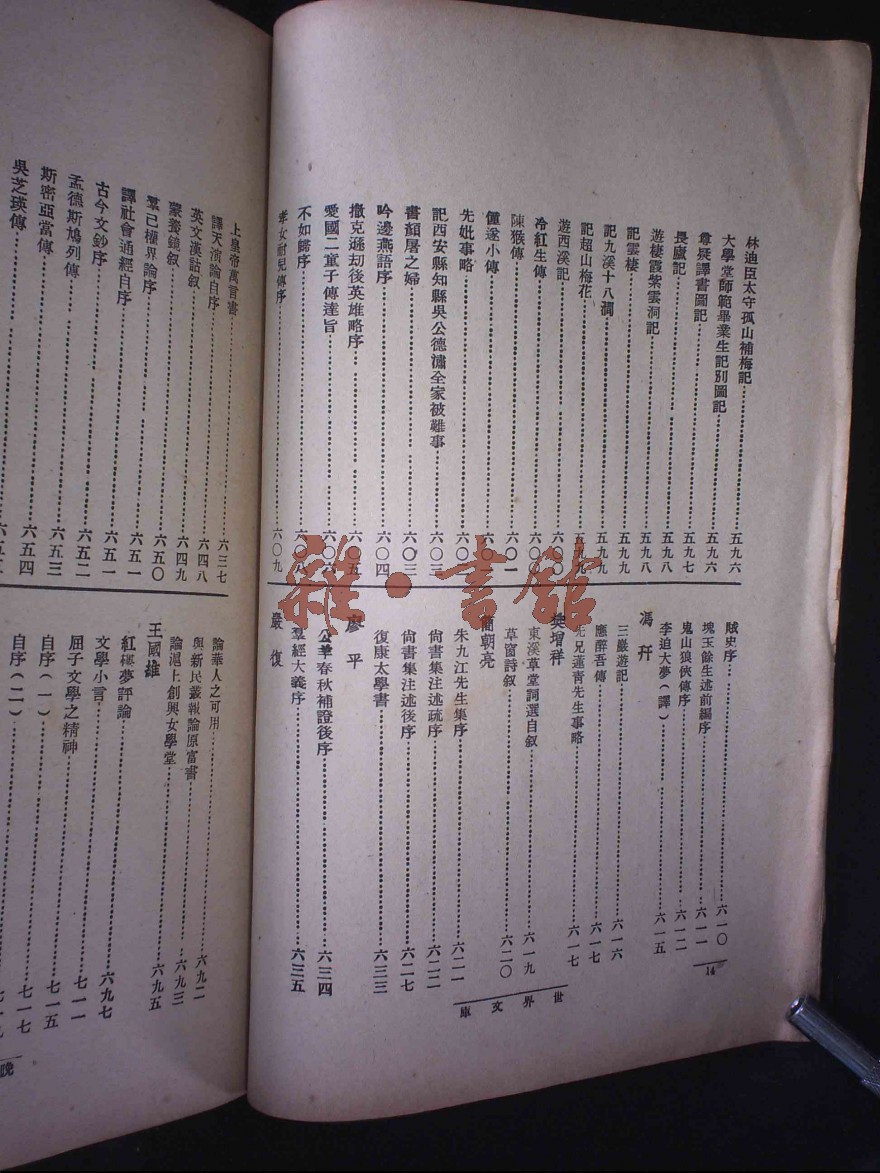 林迪臣太守孤山補梅記……五九六
大學堂師範畢業生記別圖記……五九六
尊疑譯書圖記……五九七
畏廬記……五九八
遊棲霞紫雲洞記……五九八
記雲棲……五九九
記九溪十八澗……五九九
記超山梅花……五九九
遊西溪記……六〇〇
冷紅生傳……六〇〇
陳猴傳……六〇一
僵遂小傳……六〇一
先妣事略……六〇二
記西安縣知縣吳公德潚全家被難事……六〇三
書顏屠之婦……六〇三
吟邊燕語序……六〇四
撒克遜劫後英雄略序……六〇五
愛國二童子傳達旨……六〇六
不如歸序……六〇八
孝女耐兒傳序……六〇九
賊史序……六一〇
塊玉餘生述前編序……六一一
鬼山狼俠傳序……六一二
李迫大夢(譯)……六一五
馮幵
三巖遊記……六一六
應醉吾傳……六一七
先兄蓮青先生事略……六一七
樊增祥
東溪草堂詞選自叙……六一九
草窗詩叙……六二〇
簡朝亮
朱九江先生集序……六二一
尙書集注述疏序……六二二
尙書集注述後序……六二七
復康太學書……六三三
廖平
公羊春秋補證後序……六三四
羣經大義序……六三五
嚴復
14
世界文庫
上皇帝萬言書……六三七
譯天演論自序……六四八
英文漢詁叙……六四九
蒙養鏡叙……六五〇
羣己權界論序……六五一
譯社會通經自序……六五一
古今文鈔序……六五二
孟德斯鳩列傳……六五三
斯密亞當傳……六五四
吳芝瑛傳
論華人之可用……六九二
與新民叢報論原富書……六九三
論滬上創興女學堂……六九五
王國維
紅樓夢評論……六九七
文學小言……七一一
屈子文學之精神……七一五
自序(一)……七一七
自序(二)……七一九
晚
雜·書館